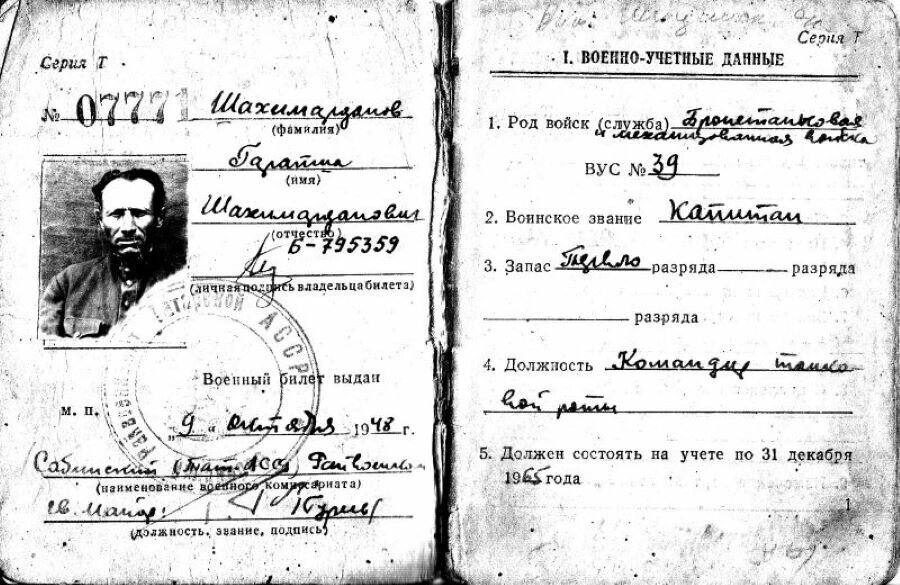 Серия Т
№ 07771 Шахимарданов
(фамилия)
(имя)
Шахимарданович
(отчество)
Б-795359
(личная подпись владельца билета)
АССР
Военный билет выдан
м. п.
„9 “ октября 1948 г.
Сабинский (ТатАССР) Райвоенком
(наименование военного комиссариата)
гв. майор
(должность, звание, подпись)
Серия Т
I. ВОЕННО-УЧЕТНЫЕ ДАННЫЕ
1. Род войск (служба) Бронетанковая
и механизованная войска
ВУС № 39
2. Воинское звание Капитан
3. Запас разряда разряда
разряда
4. Должность Командир танко
вой роты
5. Должен состоять на учете по 31 декабря
1965 года
1